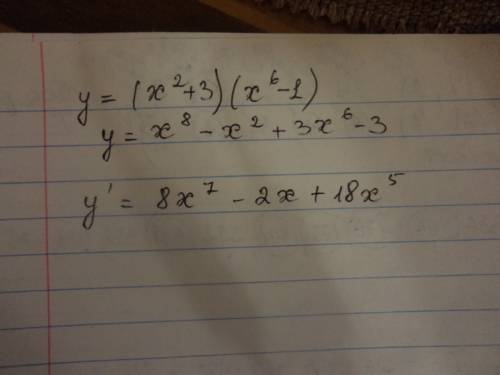 y = (x²+3)(x⁶-1)
y = x⁸ - x² + 3x⁶ - 3
y' = 8x⁷ - 2x + 18x⁵